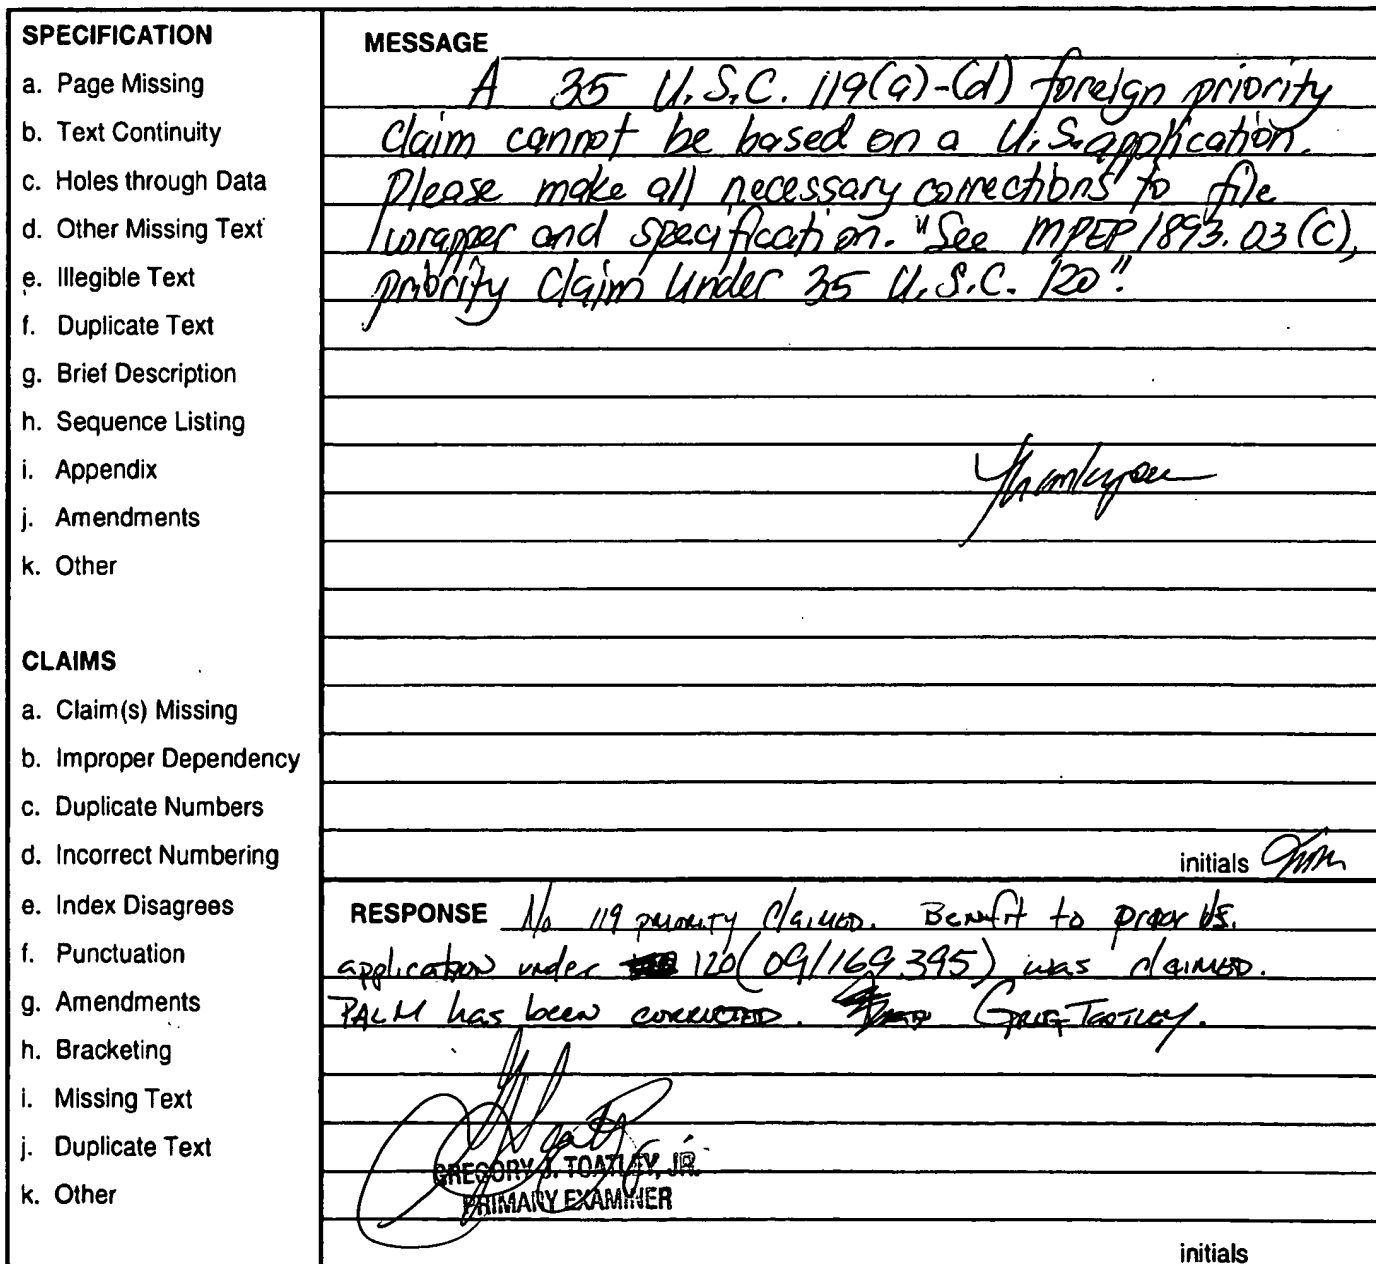 SPECIFICATION
a. Page Missing
b. Text Continuity
c. Holes through Data
d. Other Missing Text
e. Illegible Text
f. Duplicate Text
g. Brief Description
h. Sequence Listing
i. Appendix
j. Amendments
k. Other
CLAIMS
a. Claim(s) Missing
b. Improper Dependency
c. Duplicate Numbers
d. Incorrect Numbering
e. Index Disagrees
f. Punctuation
g. Amendments
h. Bracketing
i. Missing Text
j. Duplicate Text
k. Other
MESSAGE
A 35 U.S.C. 119(a)-(d) foreign priority
claim cannot be based on a U.S. application.
Please make all necessary corrections to file
wrapper and specification. "See MPEP 1893.03(C),
priority Claim Under 35 U.S.C. 120".
Thankyou
initials
RESPONSE No 119 priority claimed. Benefit to prior U.S.
application under 120 (09/169.395) was claimed.
PALM has been corrected. Greg Toatley.
GREGORY J. TOATLEY, JR.
PRIMARY EXAMINER
initials